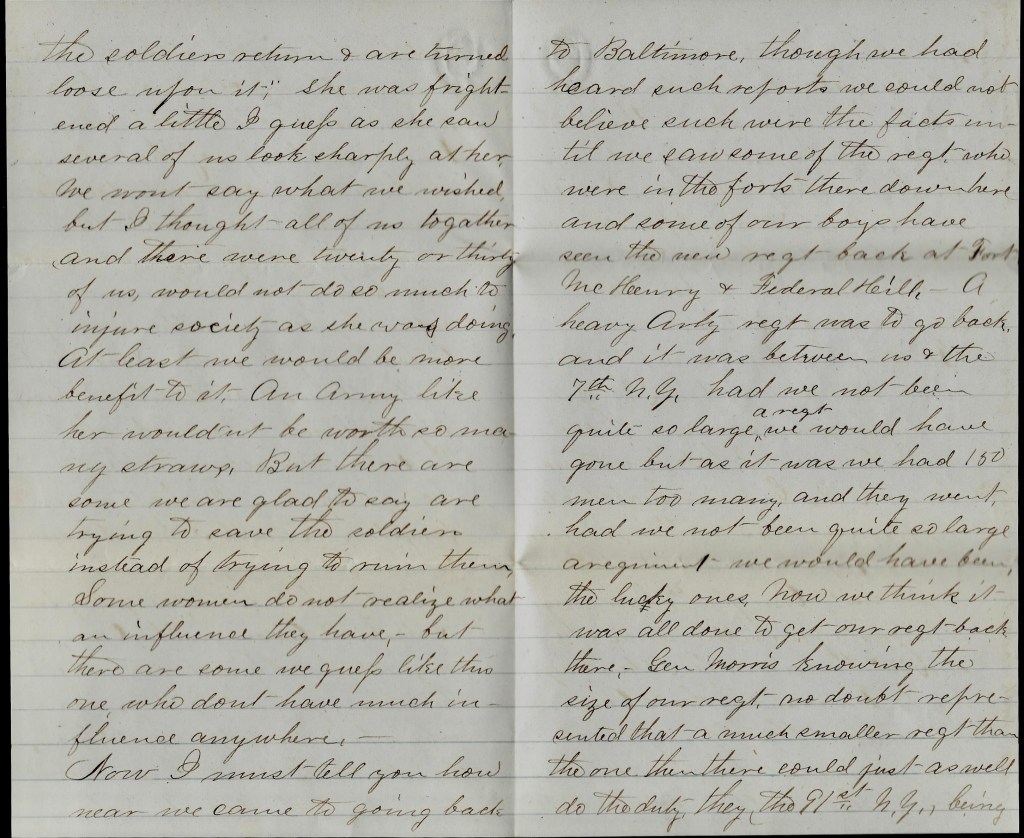 the soldiers return & are turned
loose upon it," She was fright-
ened a little I guess as she saw
several of us look sharply at her
We wont say what we wished,
but I thought all of us togather
and there were twenty or thirty
of us, would not do so much to
injure society as she was doing.
At least we would be more
benefit to it. An Army like
her would'nt be worth so ma-
ny straws, But there are
some we are glad to say are
trying to save the soldiers
instead of trying to ruin them,
Some women do not realize what
an influence they have, - but
there are some we guess like this
one who dont have much in-
fluence anywhere, -
Now I must tell you how
near we came to going back
to Baltimore, though we had
heard such reports we could not
believe such were the facts un-
til we saw some of the regt. who
were in the forts there down here
and some of our boys have
seen the new regt back at Fort
McHenry & Federal Hill, - A
heavy Arty regt was to go back,
and it was between us & the
7th N.Y, had we not been
quite so large, a regt we would have
gone but as it was we had 150
men too many, and they went,
had we not been quite so large
a regiment we would have been,
the lucky ones, Now we think it
was all done to get our regt back
there, - Gen Morris knowing the
size of our regt, no doubt repre-
sented that a much smaller regt than
the one then there could just as well
do the duty, they, the 91st N.Y., being